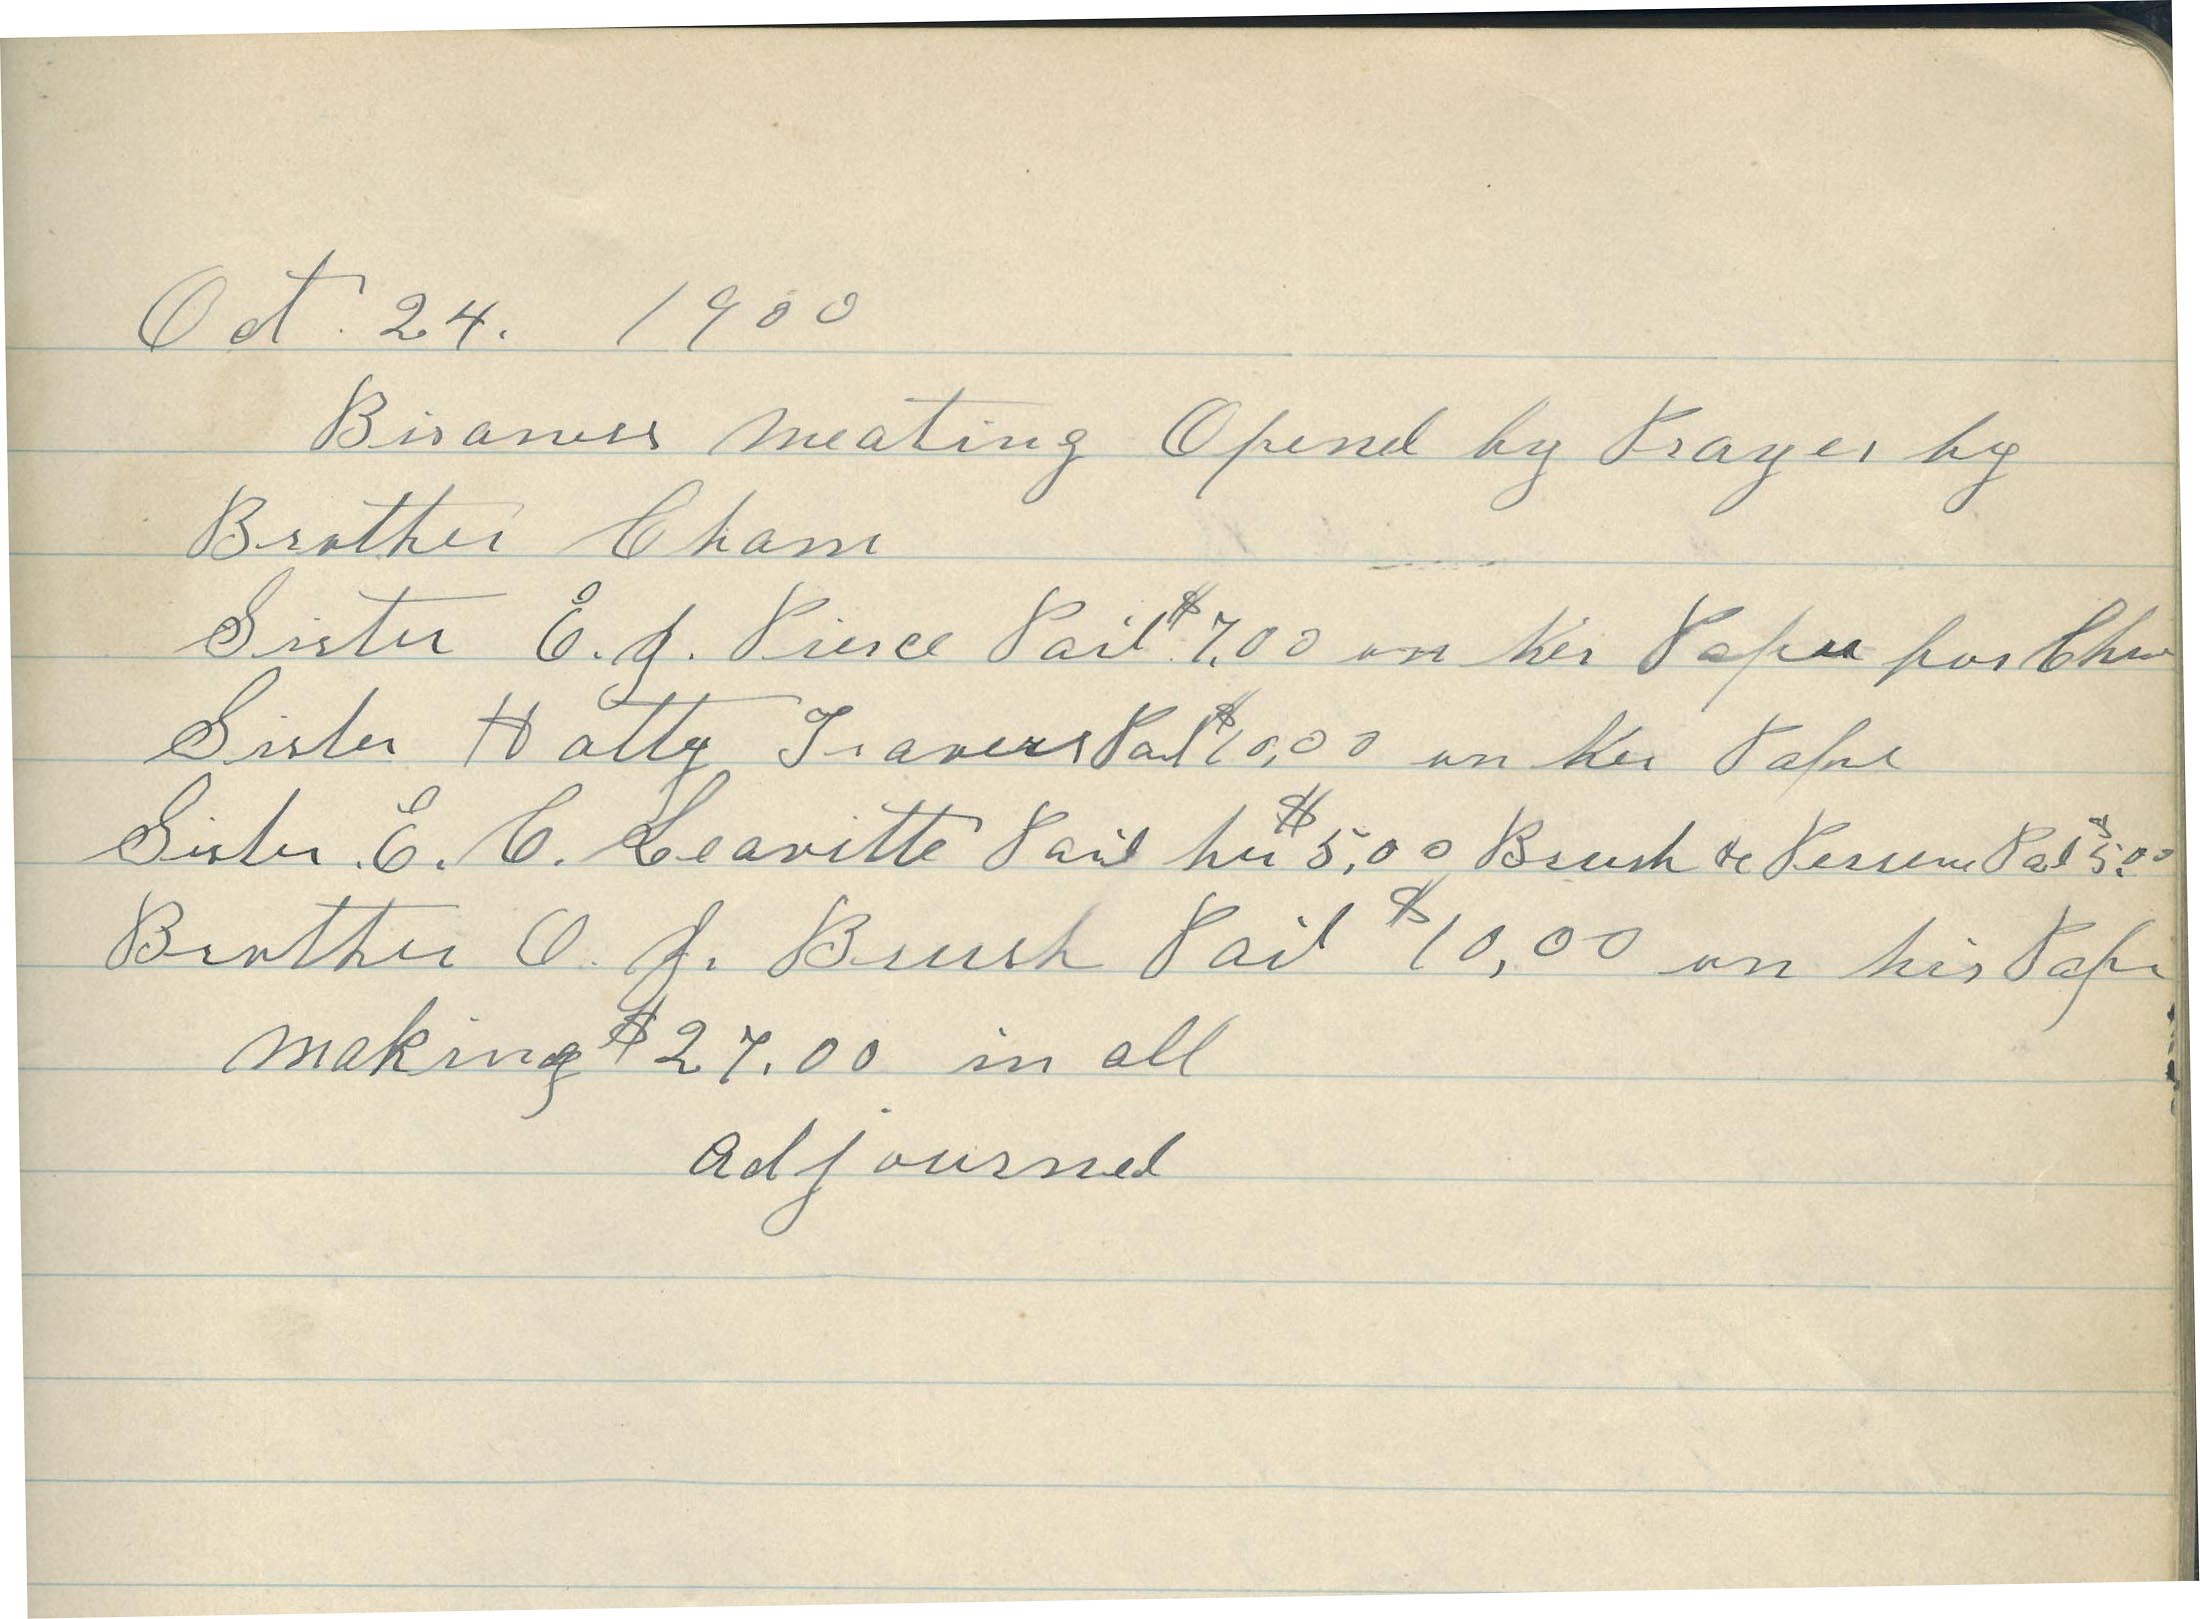 Oct. 24. 1900
Bisaness meating Opend by Prayer by
Brother Cham
Sister E. J. Pierce Paid $7.00 on her Paper for Chu
Sister Hatty Travers Paid $10,00 on her Pape
Sister E. C. Leavitte Paid her $5,00 Brush & Paid $5.00
Brother O. J. Brush Paid $10,00 on his Pape
making $27.00 in all
adjourned